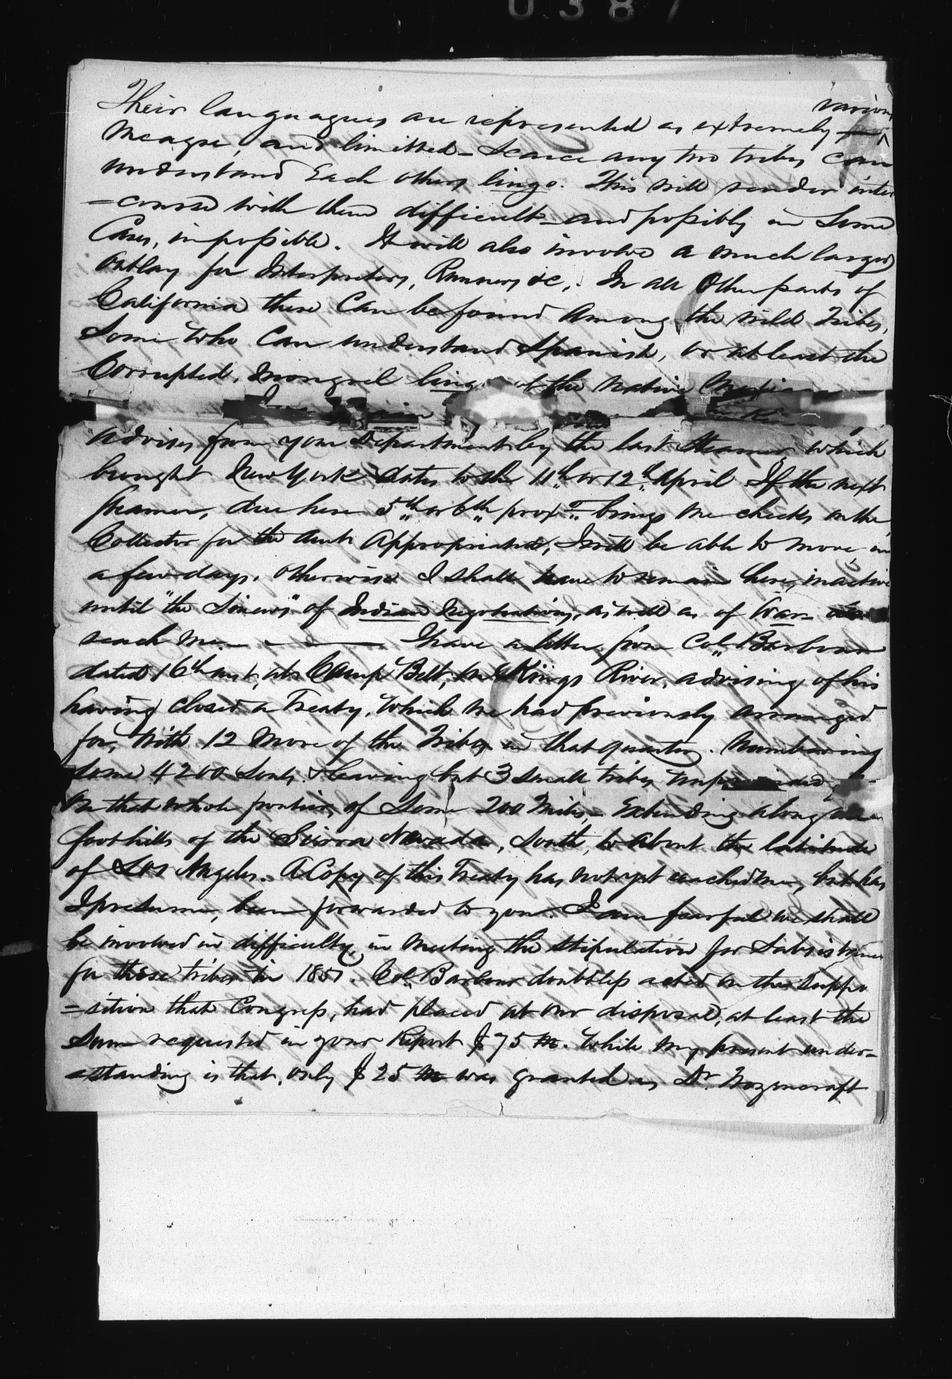 0387
various
Their languages are represented as extremely
meagre, and limitted – Scarce any two tribes can
understand Each others lingo. This will render inter
=course with them difficult – and possibly in Some
Cases, impossible. It will also involve a much larger
outlay for Interpreters, Runners &c,. In all Other parts of
California there Can be found among the wild Tribes,
Some who Can understand Spanish, or at least the
Corrupted, mongrel lingo of the native
advises from your Department by the last Steamer which
brought New York dates to the 11th or 12th April If the next
Steamer, due here 5th or 6th proxo brings me checks on the
Collector for the amt. Appropriated, I will be able to move in
a few days, otherwise I shall have to remain here, inactive
until "the Sinews" of Indian negotiations, as well as of War
reach me. — I have a letter from Col. Barbour
dated 16th inst, at Camp Belt, on Kings River, advising of his
having closed a Treaty, which we had previously arranged
for, with 12 more of the Tribes in that quarter. Numbering
some 4200 Souls, & leaving but 3 small tribes
in that whole portion of Some 200 Miles – Extending along
foot hills of the Sierra Nevada, South, to about the latitude
of Los Angeles. A Copy of this Treaty has not yet reached me, but has
I presume, been forwarded to you. I am fearful we shall
be involved in difficulty in meeting the stipulation for Subsistence
for these tribes in 1851. Col. Barbour doubtless acted on the Suppo
=sition that Congress, had placed at our disposal, at least the
Sum requested in your Report $75 m. While my present under=
=standing is that, only $25 m was granted us Dr. Wozencraft